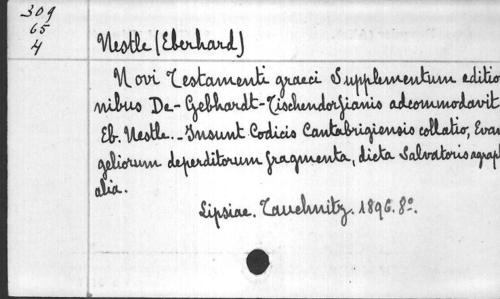 309
65
4
Nestle (Eberhard)
Novi Testamenti graeci Supplementum editio
nibus De-Gebhardt-Tischendorfianis adcommodavit
Eb. Nestle.-Insunt Codicis Cantabrigiensis collatio, Evan
geliorum deperditorum fragmenta, dicta Salvatoris agraph
alia.
Lipsiae. Tauchnitz. 1896. 8º.